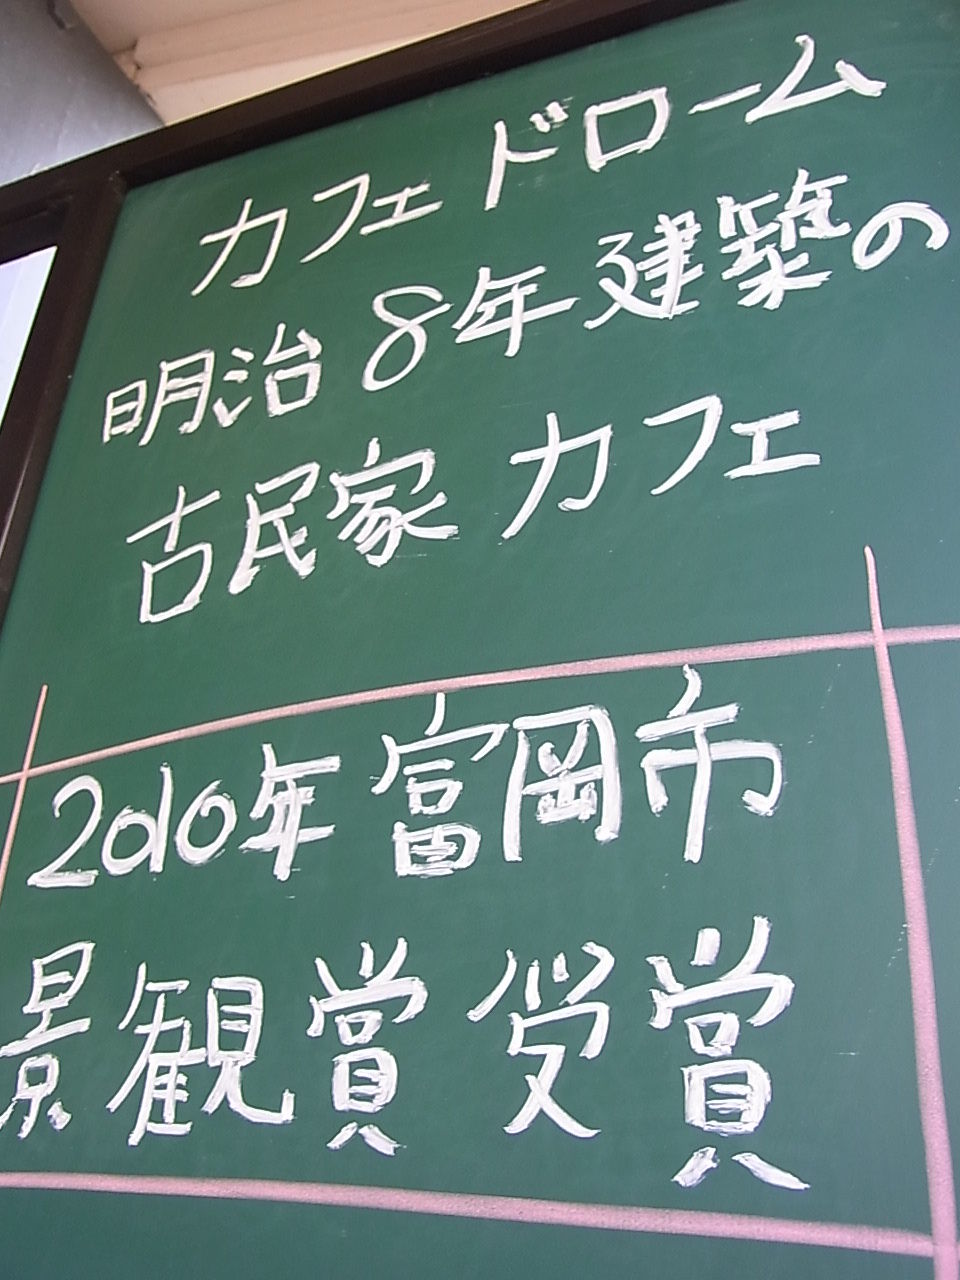 カフェ ドローム
明治8年建築の
古民家 カフェ
2010年富岡市
景観賞 受賞